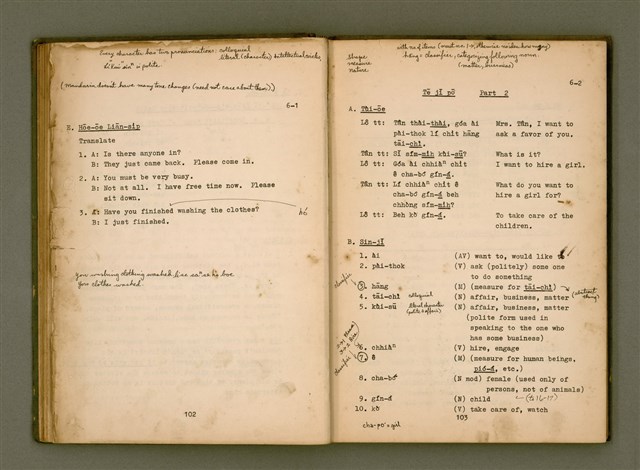 Every character has two pronunciations: colloquial
literal (character)
(Mandarin doesn't have many tone changes (need not care about them))
6-1
E. Hōe-ōe Liān-si̍p
Translate
1. A: Is there anyone in?
B: They just came back. Please come in.
2. A: You must be very busy.
B: Not at all. I have free time now. Please
sit down.
3. A: Have you finished washing the clothes?
B: I just finished.
you washing clothing washed
your clothes washed.
102
Shape
measure
nature
6-2
Tē jī pō Part 2
A. Tùi-ōe
Lô tt: Tân thài-thài, góa ài Mrs. Tân, I want to
pài-thok lí chi̍t hāng ask a favor of you.
tāi-chì.
Tân tt: Sī sím-mih kùi-sū? What is it?
Lô tt: Góa ài chhiàⁿ chi̍t I want to hire a girl.
ê cha-bó gín-á.
Tân tt: Lí chhiàⁿ chi̍t ê What do you want to
cha-bó gín-á beh hire a girl for?
chhòng sím-mih?
Lô tt: Beh kò͘ gín-á. To take care of the
children.
B. Sin-jī
1. ài (AV) want to, would like to
2. pài-thok (V) ask (politely) some one
to do something
3. hāng (M) (measure for tāi-chì)
4. tāi-chì colloquial (N) affair, business, matter
5. kùi-sū (N) affair, business, matter
(polite form used in
speaking to the one who
has some business)
6. chhiàⁿ (V) hire, engage
7. ê (M) (measure for human beings,
pió-á, etc.)
8. cha-bó (N mod) female (used only of
persons, not of animals)
9. gín-á (N) child
10. kò͘ (V) take care of, watch
103
cha-po = girl